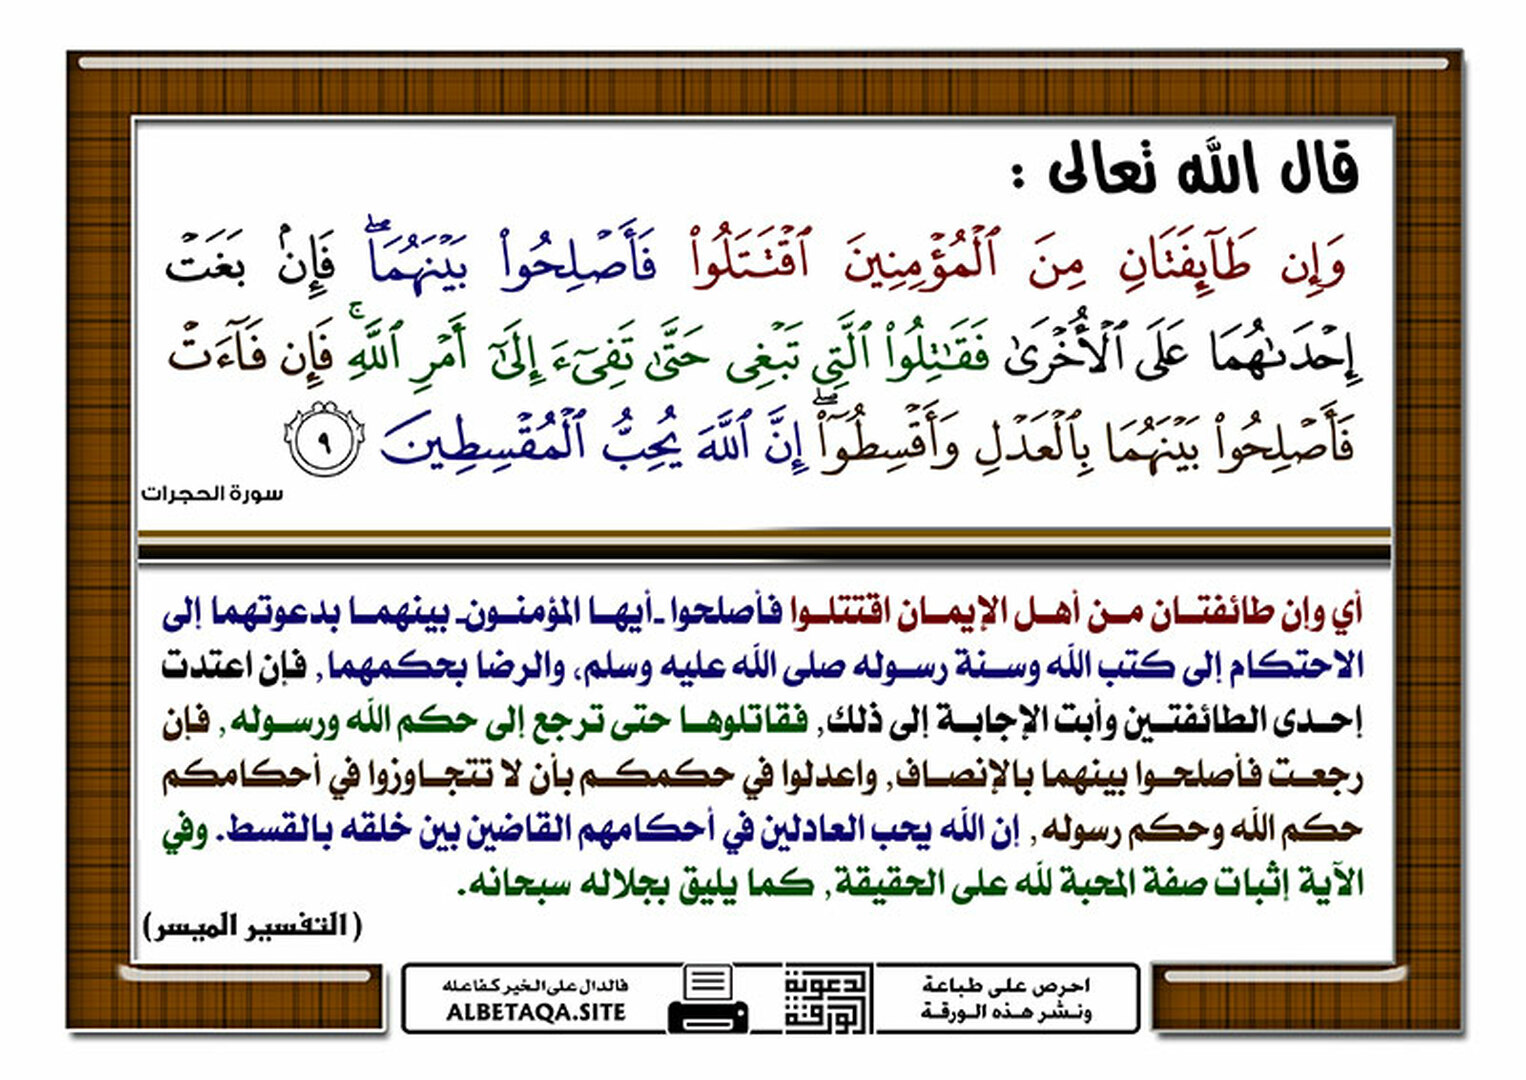 قال الله تعالى :
وَإِن طَآئِفَتَانِ مِنَ ٱلْمُؤْمِنِينَ ٱقْتَتَلُوا۟ فَأَصْلِحُوا۟ بَيْنَهُمَا ۖ فَإِنۢ بَغَتْ
إِحْدَىٰهُمَا عَلَى ٱلْأُخْرَىٰ فَقَٰتِلُوا۟ ٱلَّتِى تَبْغِى حَتَّىٰ تَفِىٓءَ إِلَىٰٓ أَمْرِ ٱللَّهِ ۚ فَإِن فَآءَتْ
فَأَصْلِحُوا۟ بَيْنَهُمَا بِٱلْعَدْلِ وَأَقْسِطُوٓا۟ ۖ إِنَّ ٱللَّهَ يُحِبُّ ٱلْمُقْسِطِينَ ٩
سورة الحجرات
أي وإن طائفتان من أهل الإيمان اقتتلوا فأصلحوا ـ أيها المؤمنون ـ بينهما بدعوتهما إلى
الاحتكام إلى كتب الله وسنة رسوله صلى الله عليه وسلم، والرضا بحكمهما, فإن اعتدت
إحدى الطائفتين وأبت الإجابة إلى ذلك, فقاتلوها حتى ترجع إلى حكم الله ورسوله, فإن
رجعت فأصلحوا بينهما بالإنصاف, واعدلوا في حكمكم بأن لا تتجاوزوا في أحكامكم
حكم الله وحكم رسوله, إن الله يحب العادلين في أحكامهم القاضين بين خلقه بالقسط. وفي
الآية إثبات صفة المحبة لله على الحقيقة, كما يليق بجلاله سبحانه.
(التفسير الميسر)
احرص على طباعة
ونشر هذه الورقة
الدعوية
الورقة
فالدال على الخير كفاعله
ALBETAQA.SITE